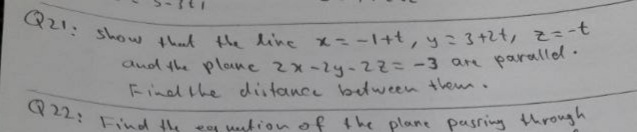 Q21: Show that the line x = -1+t, y = 3+2t, z = -t
and the plane 2x - 2y - 2z = -3 are parallel.
Find the distance between them.
Q22: Find the equation of the plane passing through